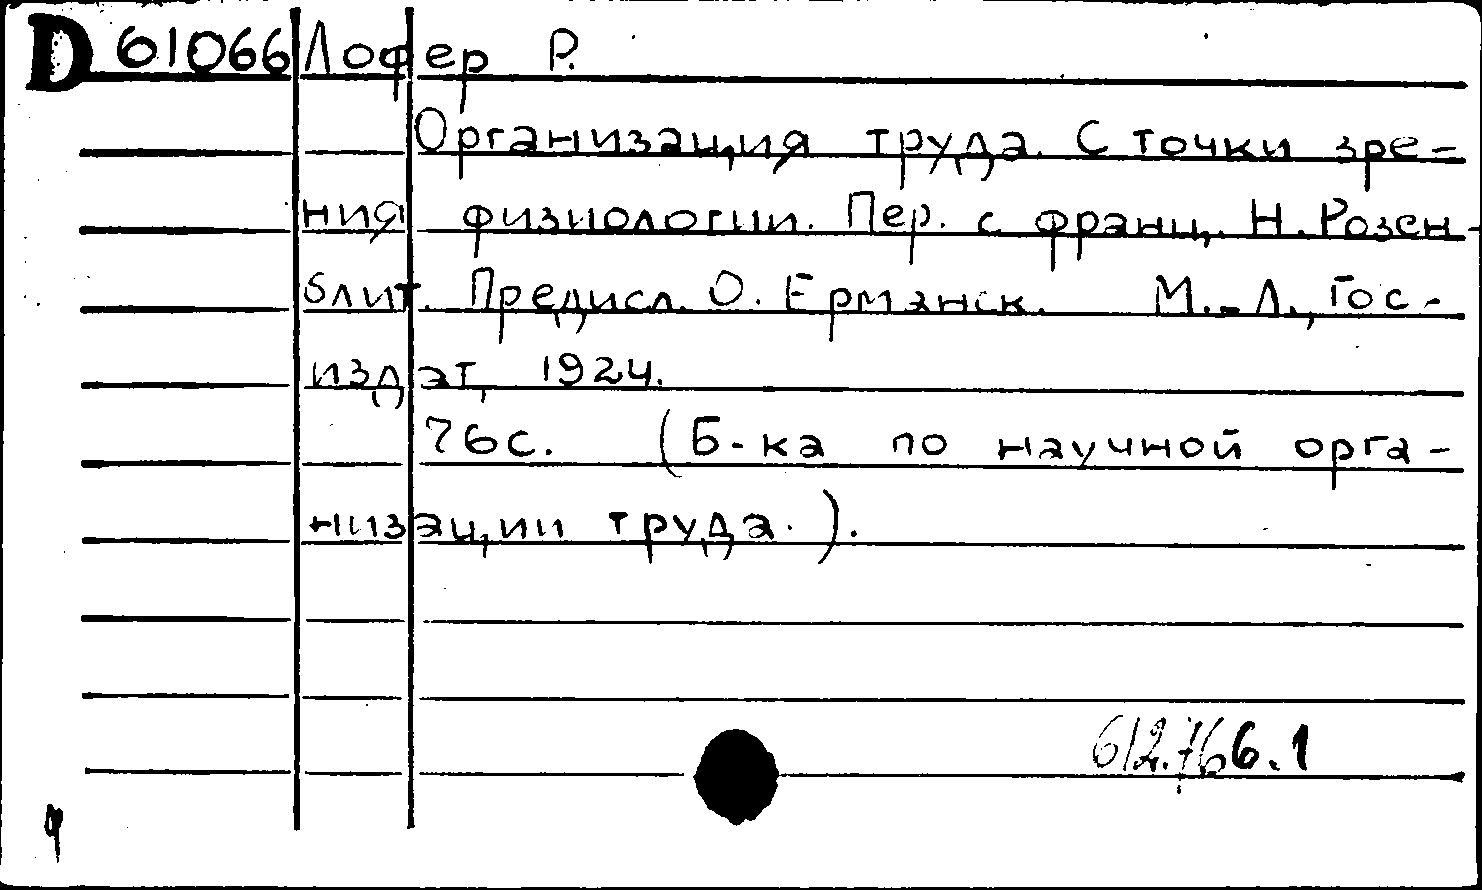 D 61066 Лофер Р.
Организация труда. С точки зре-
ния физиологии. Пер. с франц. Н. Розен-
блит. Предисл. О. Ерманск. М.-Л., Гос-
издат, 1924.
76с. (Б-ка по научной орга-
низации труда.).
612.766.1